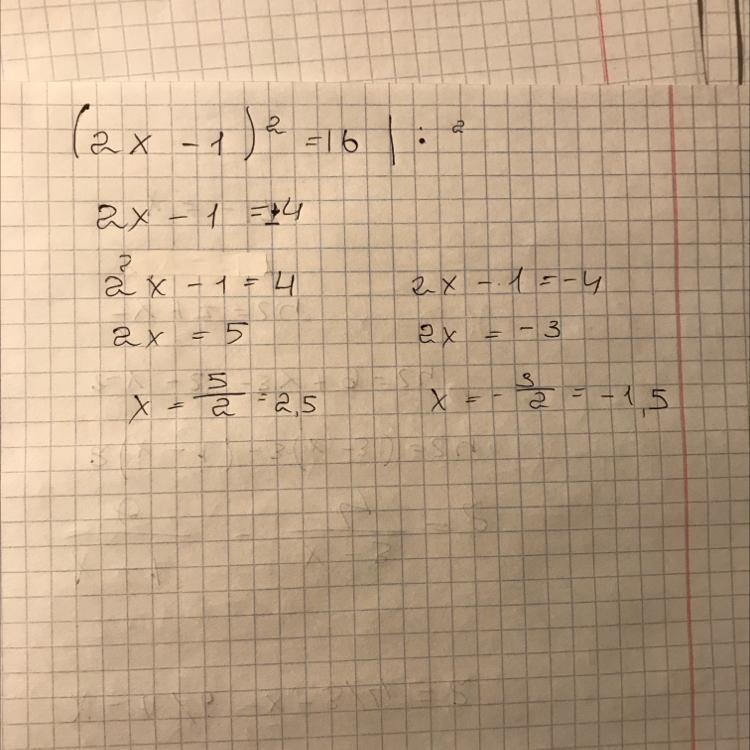 (2x - 1)² = 16 | : ²
2x - 1 = ±4
2x - 1 = 4
2x - 1 = -4
2x = 5
2x = -3
x = 5/2 = 2,5
x = -3/2 = -1,5